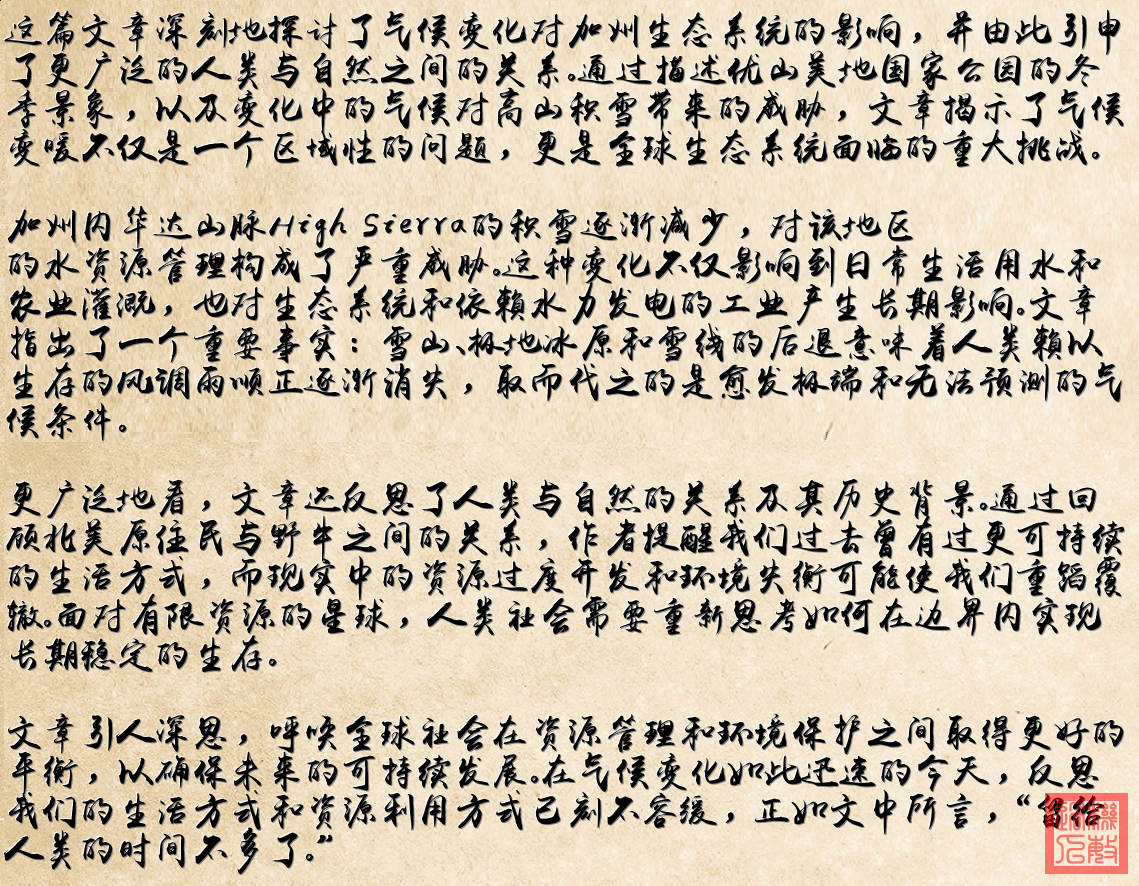 这篇文章深刻地探讨了气候变化对加州生态系统的影响，并由此引申
了更广泛的人类与自然之间的关系。通过描述优山美地国家公园的冬
季景象，以及变化中的气候对高山积雪带来的威胁，文章揭示了气候
变暖不仅是一个区域性的问题，更是全球生态系统面临的重大挑战。
加州内华达山脉High Sierra的积雪逐渐减少，对该地区
的水资源管理构成了严重威胁。这种变化不仅影响到日常生活用水和
农业灌溉，也对生态系统和依赖水力发电的工业产生长期影响。文章
指出了一个重要事实：雪山、极地冰原和雪线的后退意味着人类赖以
生存的风调雨顺正逐渐消失，取而代之的是愈发极端和无法预测的气
候条件。
更广泛地看，文章还反思了人类与自然的关系及其历史背景。通过回
顾北美原住民与野牛之间的关系，作者提醒我们过去曾有过更可持续
的生活方式，而现实中的资源过度开发和环境失衡可能使我们重蹈覆
辙。面对有限资源的星球，人类社会需要重新思考如何在边界内实现
长期稳定的生存。
文章引人深思，呼唤全球社会在资源管理和环境保护之间取得更好的
平衡，以确保未来的可持续发展。在气候变化如此迅速的今天，反思
我们的生活方式和资源利用方式已刻不容缓，正如文中所言，“留给
人类的时间不多了。”